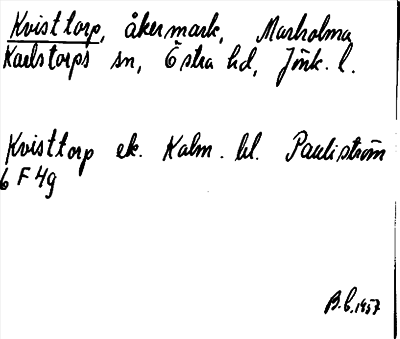 Kvisttorp, åkermark, Marholma
Karlstorps sn, Östra hd, Jönk. l.
Kvisttorp ek. Kalm. bl. Pauliström
6 F 4g
B.L. 1957